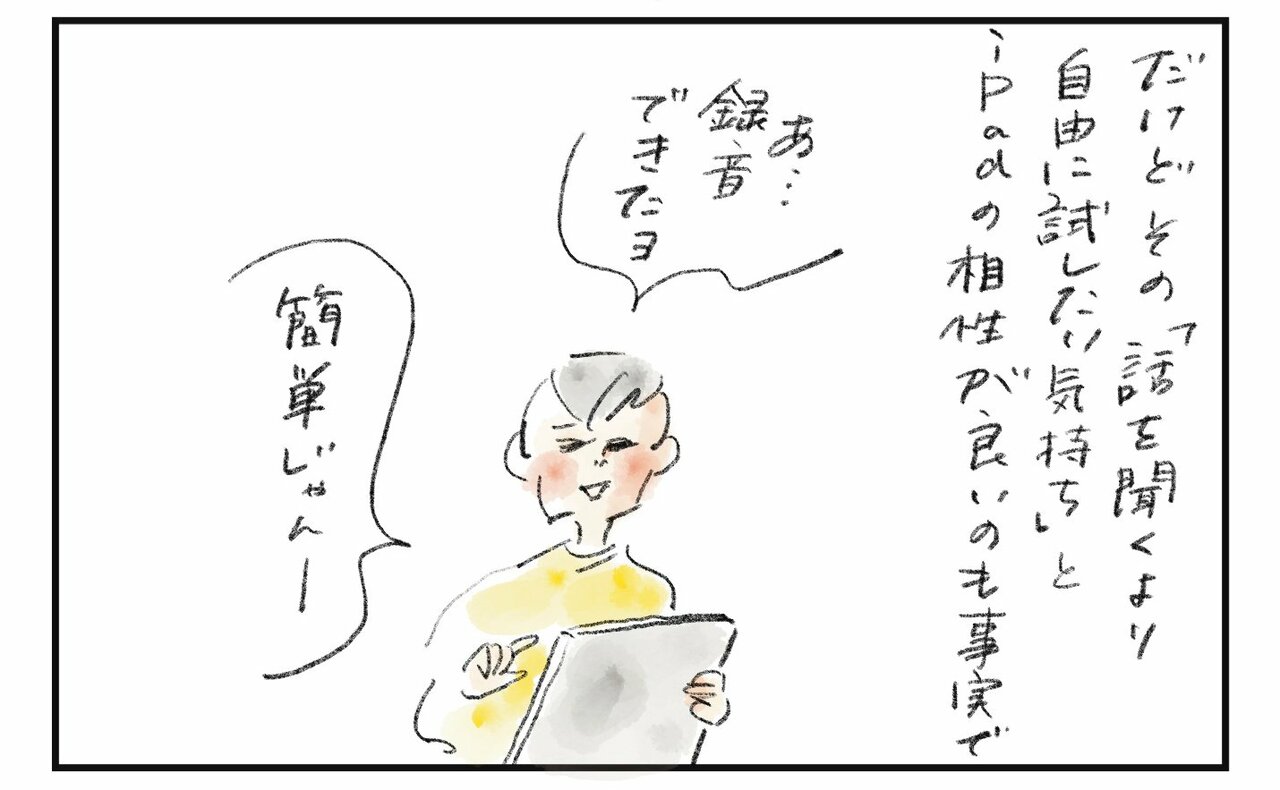 だけどその「話を聞くより
自由に試したい気持ち」と
iPadの相性が良いのも事実で
あ…
録音
できたヨ
簡単じゃんー